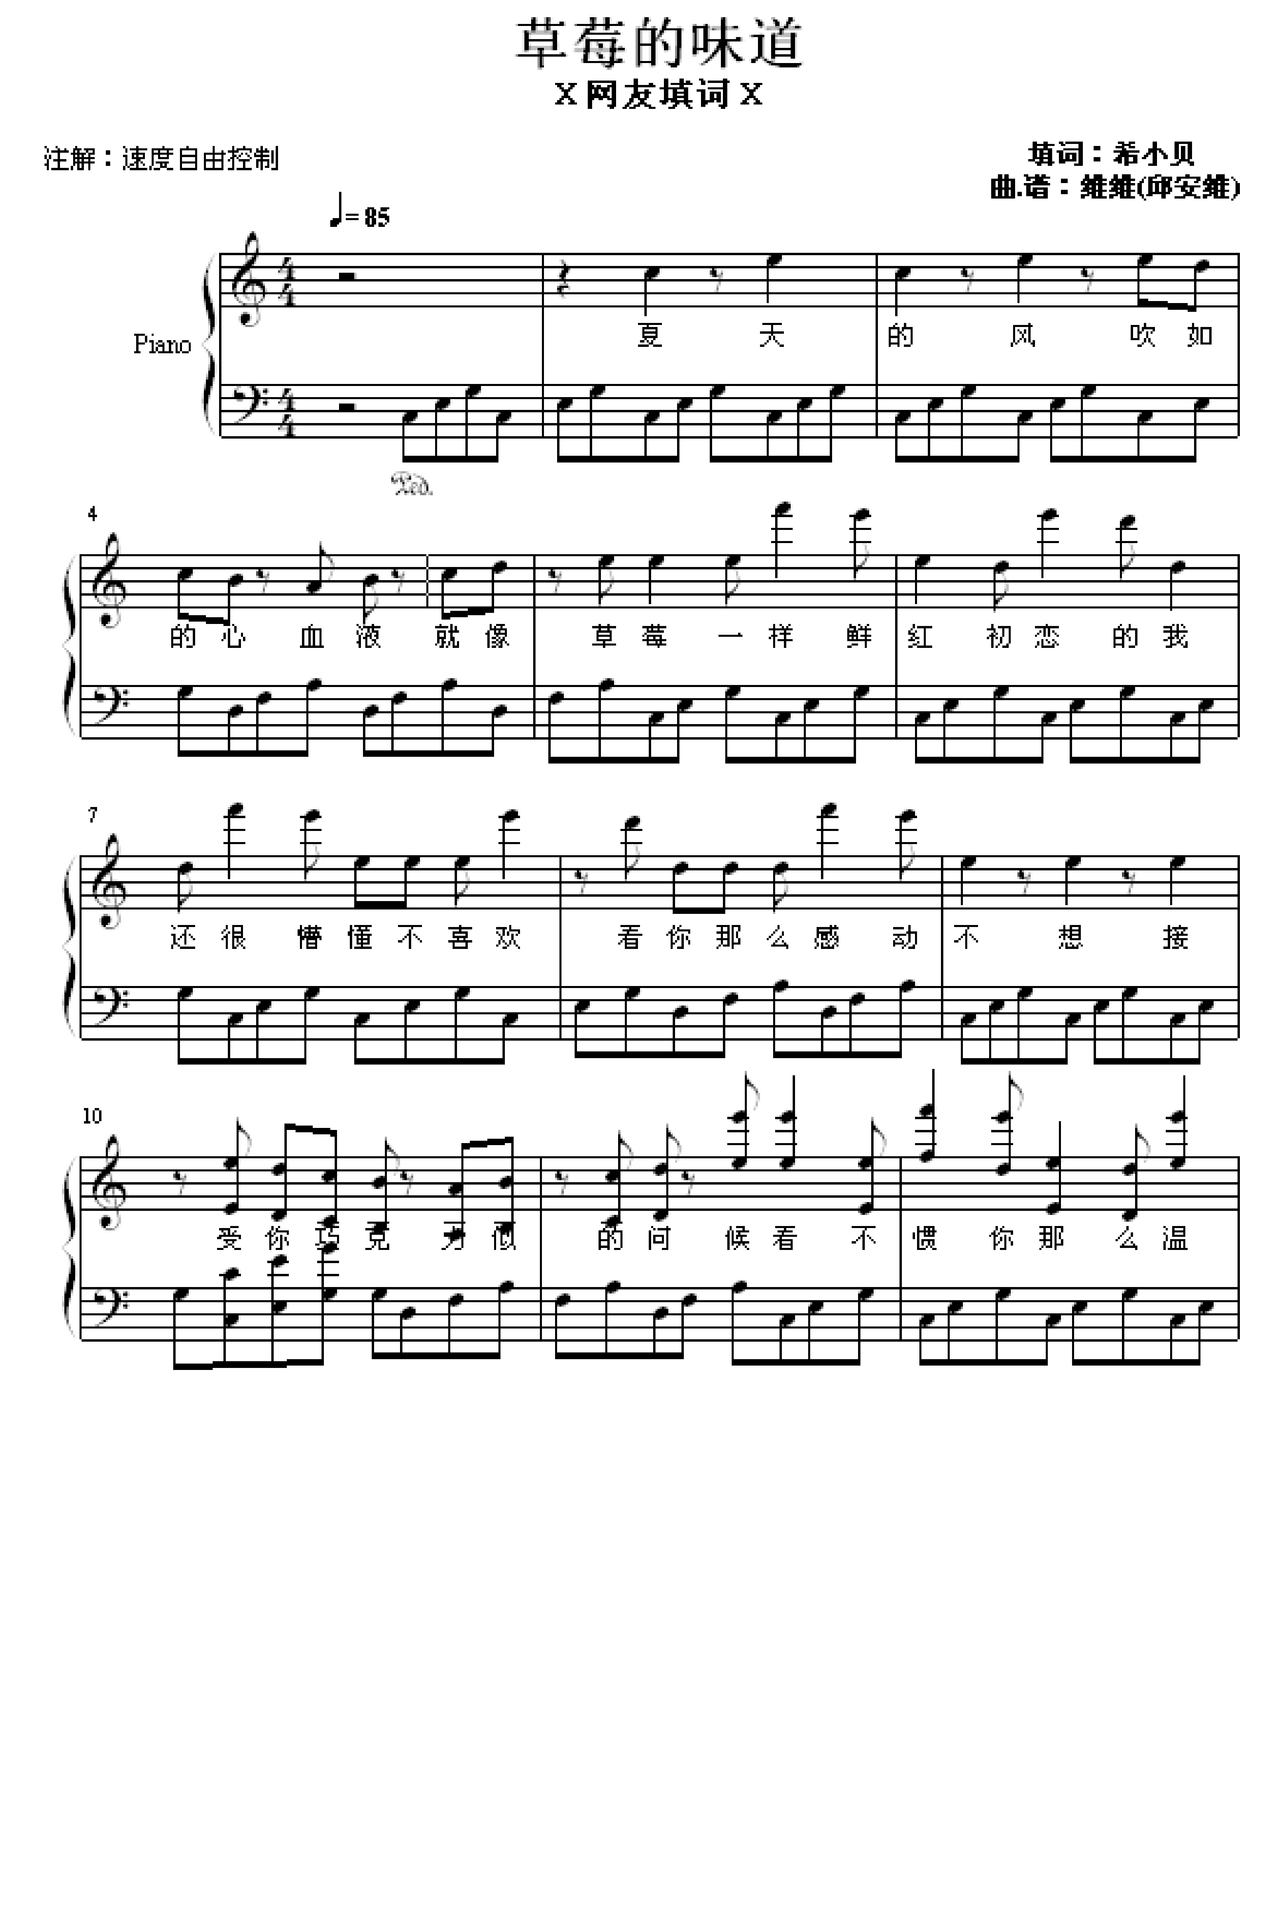 草莓的味道
X 网友填词 X
注解：速度自由控制
填词：希小贝
曲.谱：維維(邱安維)
= 85
Piano
夏 天 的 风 吹 如
Ped.
4
的 心 血 液 就 像 草 莓 一 样 鲜 红 初 恋 的 我
7
还 很 懵 懂 不 喜 欢 看 你 那 么 感 动 不 想 接
10
受 你 巧 克 力 似 的 问 候 看 不 惯 你 那 么 温